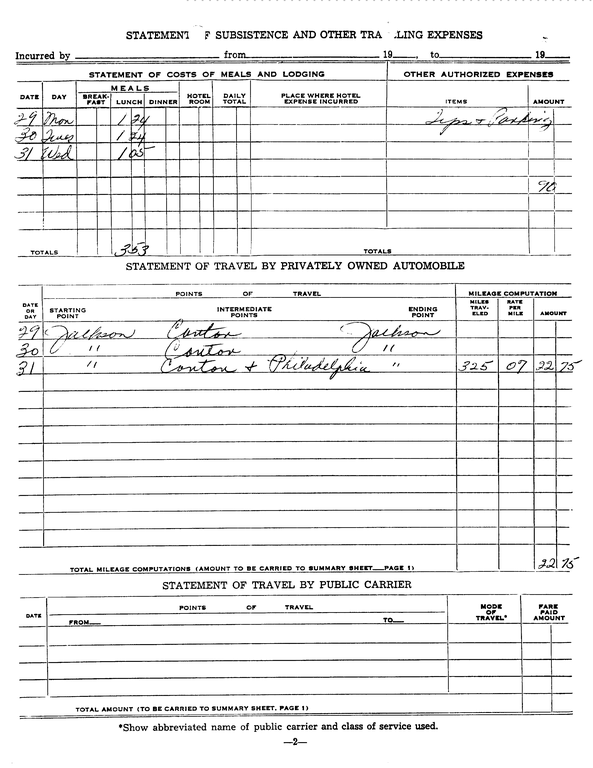 STATEMENT F SUBSISTENCE AND OTHER TRA .LING EXPENSES
Incurred by from 19 , to 19
STATEMENT OF COSTS OF MEALS AND LODGING OTHER AUTHORIZED EXPENSES
DATE DAY MEALS BREAK-FAST LUNCH DINNER HOTEL ROOM DAILY TOTAL PLACE WHERE HOTEL EXPENSE INCURRED ITEMS AMOUNT
29 Mon 1 24 Tips & Parking
30 Tues 1 24
31 Wed 1 05
90
TOTALS 3.53 TOTALS
STATEMENT OF TRAVEL BY PRIVATELY OWNED AUTOMOBILE
DATE OR DAY POINTS OF TRAVEL MILEAGE COMPUTATION
STARTING POINT INTERMEDIATE POINTS ENDING POINT MILES TRAV-ELED RATE PER MILE AMOUNT
29 Jackson Canton Jackson
30 " Canton "
31 " Canton & Philadelphia " 325 07 22 75
TOTAL MILEAGE COMPUTATIONS (AMOUNT TO BE CARRIED TO SUMMARY SHEET PAGE 1) 22 75
STATEMENT OF TRAVEL BY PUBLIC CARRIER
DATE POINTS OF TRAVEL MODE OF TRAVEL* FARE PAID AMOUNT
FROM TO
TOTAL AMOUNT (TO BE CARRIED TO SUMMARY SHEET, PAGE 1)
*Show abbreviated name of public carrier and class of service used.
—2—